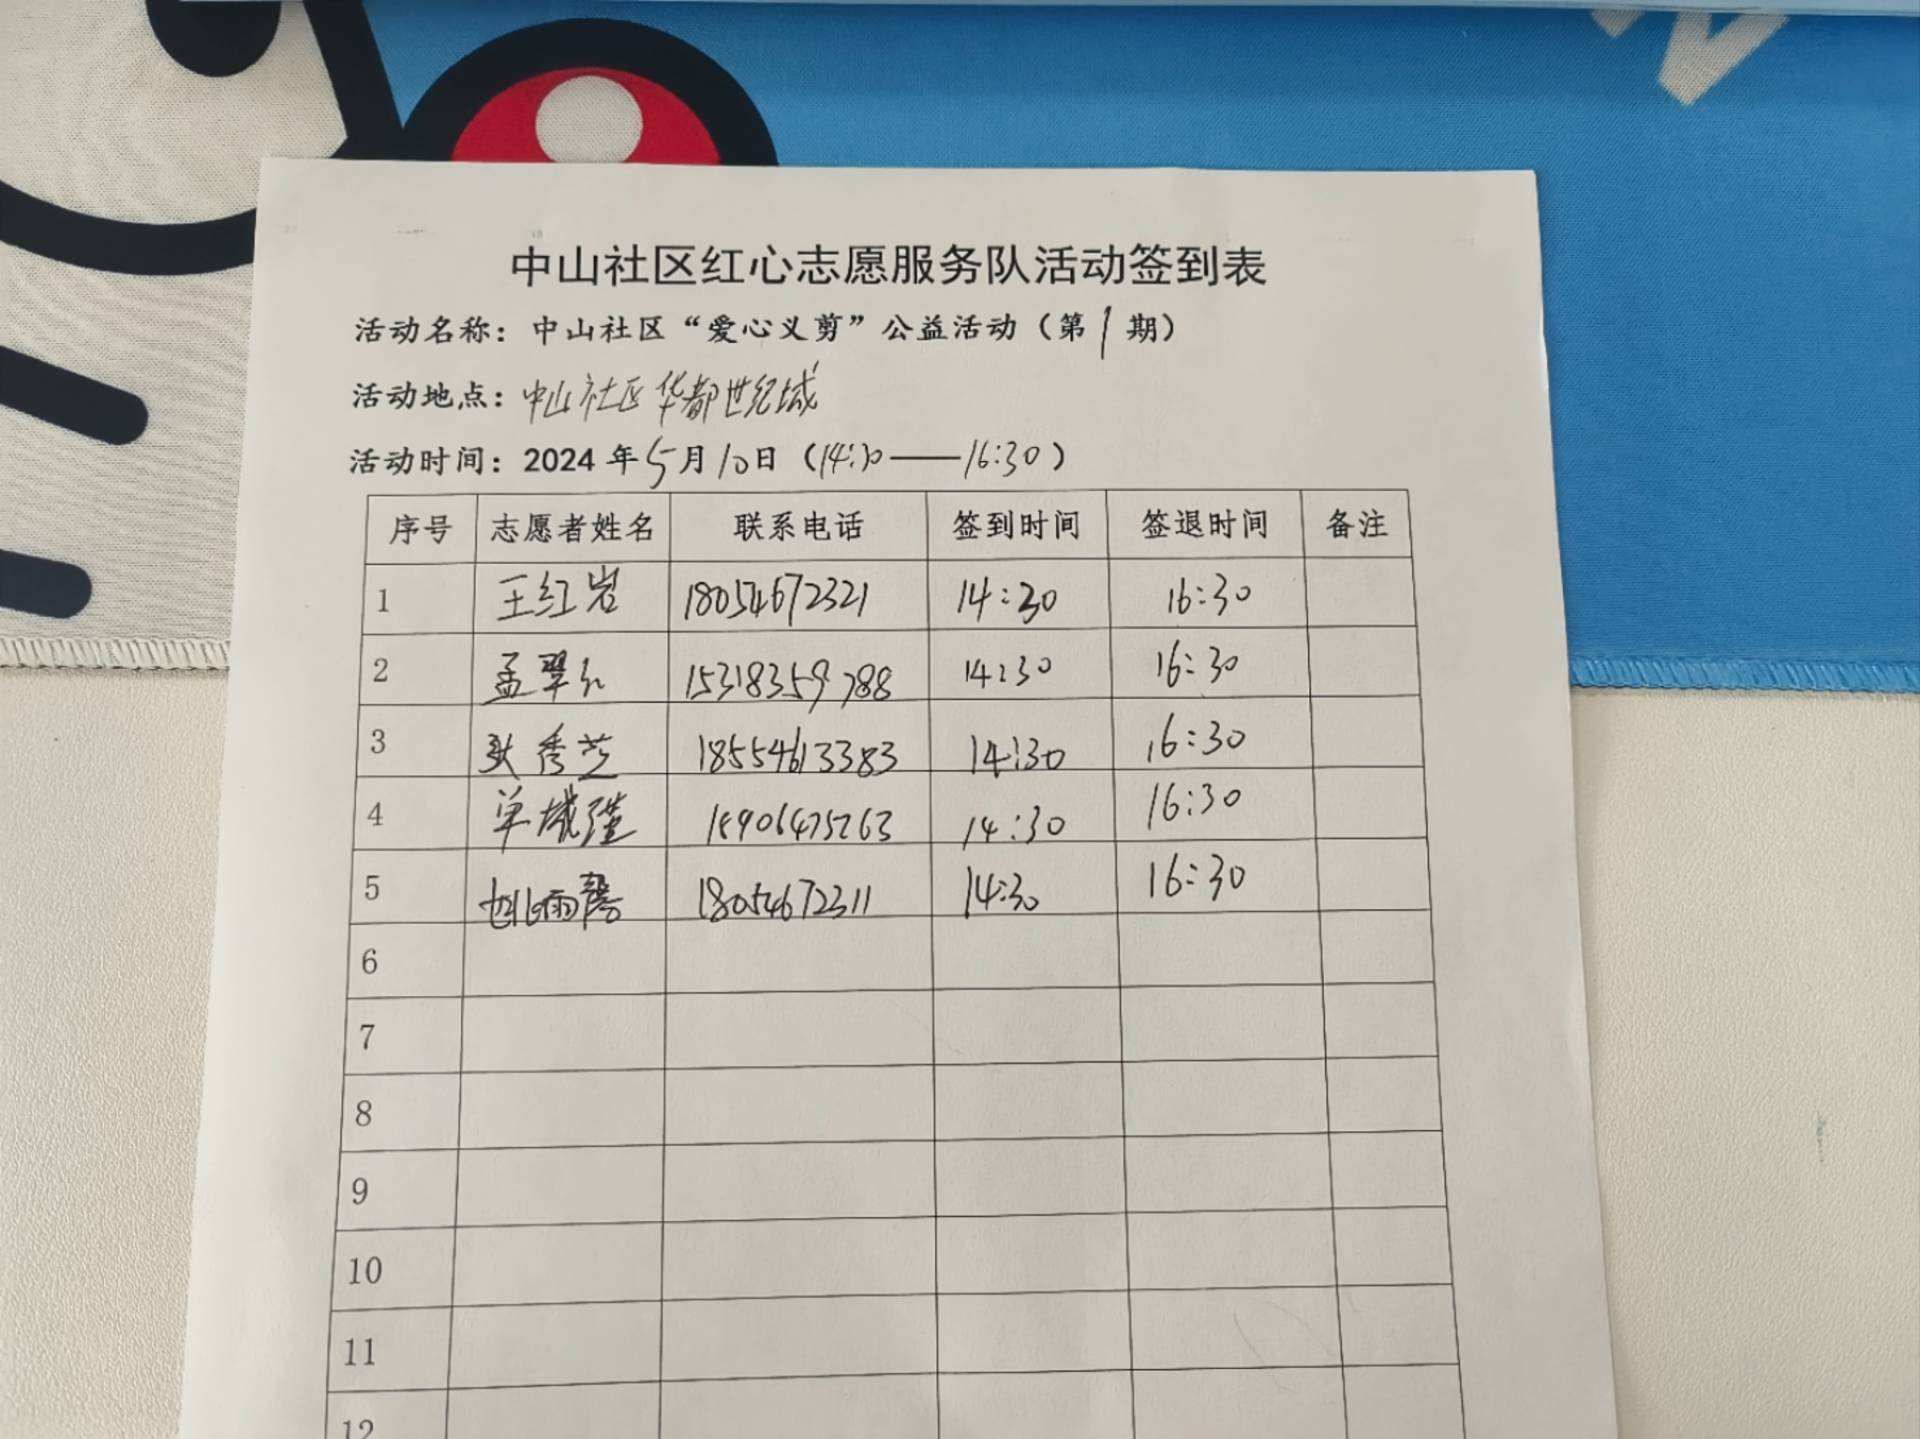 中山社区红心志愿服务队活动签到表
活动名称：中山社区“爱心义剪”公益活动（第1期）
活动地点：中山社区华都世纪城
活动时间：2024年5月10日（14:30——16:30）
序号 志愿者姓名 联系电话 签到时间 签退时间 备注
1 王红岩 18054672321 14:30 16:30
2 孟翠红 15318359788 14:30 16:30
3 秀芝 18554613383 14:30 16:30
4 单 14:30 16:30
5 18054672311 14:30 16:30
6
7
8
9
10
11
12